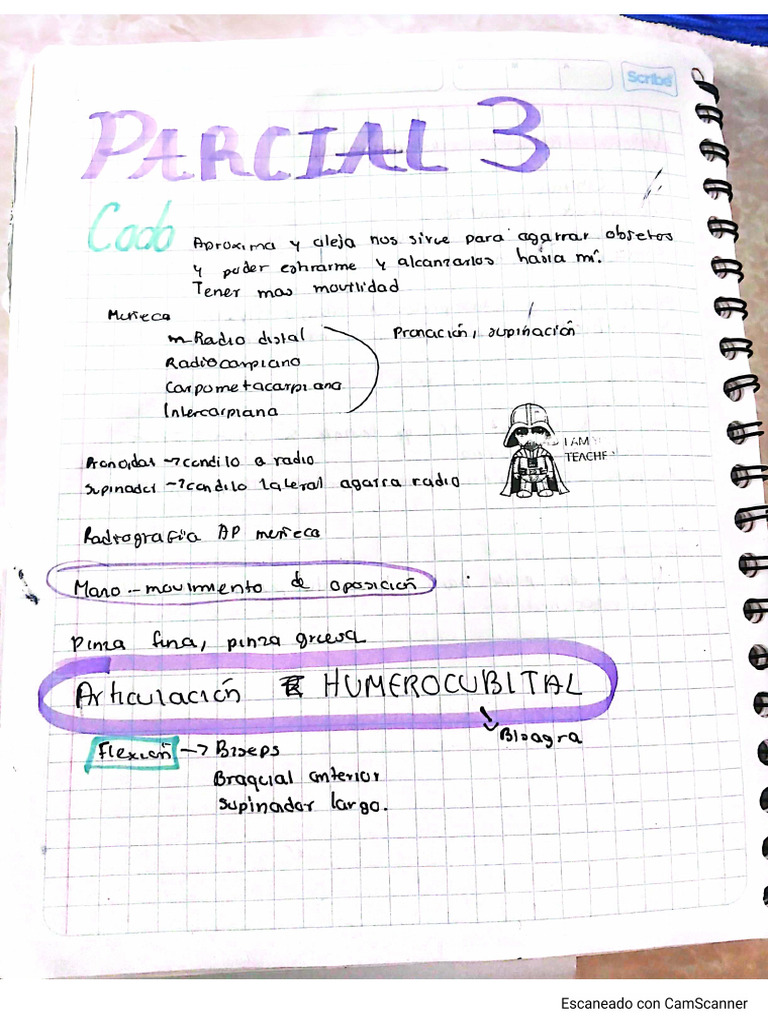 Scribe
PARCIAL 3
Codo
Aproxima y aleja nos sirve para agarrar objetos
y poder estirarme y alcanzarlos hasia mí.
Tener mas movilidad
Muñeca
Radio distal
Radiocarpiano
Carpometacarpiana
Intercarpiana
Pronación, supinación
I AM
TEACHE
Pronador → condilo a radio
Supinador → condilo lateral agarra radio
Radiografía AP muñeca
Mano - movimiento de oposición
Pinza fina, pinza gruesa
Articulación HUMEROCUBITAL
Bisagra
Flexión → Biseps
Braquial anterior
Supinador largo.
Escaneado con CamScanner